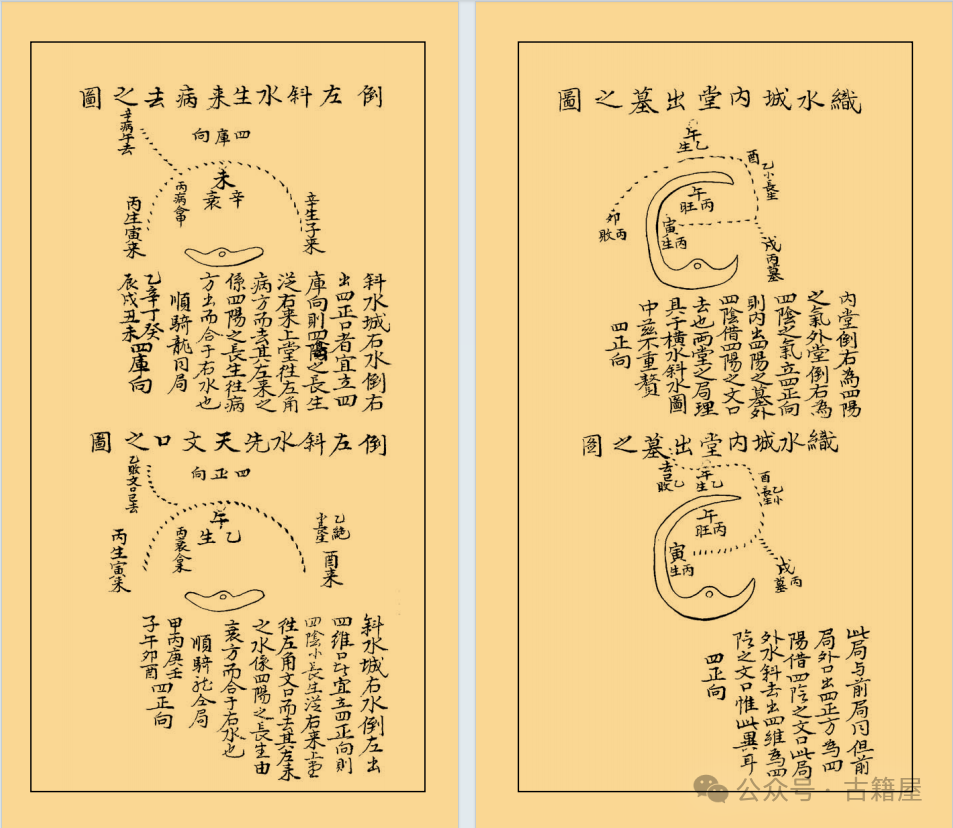 織水城内堂出墓之圖
午
乙生
酉
乙小長生
午
丙旺
卯
丙敗
寅
丙生
戌丙墓
内堂倒右為四陽
之氣外堂倒右為
四陰之氣立四正向
則内出四陽之墓外
四陰借四陽之文口
去也両堂之局理
具于橫水斜水圖
中茲不重贅
四正向
織水城内堂出墓之圖
乙敗
巳去
午
乙生
酉
乙小長生
午
丙旺
寅
丙生
戌
丙墓
此局与前局同但前
局外口出四正方為四
陽借四陰之文口此局
外水斜去出四維為四
陰之文口惟此異耳
四正向
倒左斜水生来病去之圖
四庫向
辛病午去
未
辛衰
丙病合申
辛生子来
丙生寅来
斜水城右水倒右
出四正口者宜立四
庫向則四之長生
從右来上堂徃左角
病方而去其左来之
係四陽之長生徃病
方出而合于右水也
順騎龍同局
乙辛丁癸
辰戌丑未四庫向
倒左斜水先天文口之圖
四正向
乙敗文口巳去
午
乙生
丙衰合未
乙絶
小長生
酉来
丙生寅来
斜水城右水倒左出
四維口宜立四正向則
四陰小長生從右来上堂
徃左角文口而去其左来
之水係四陽之長生由
衰方而合于右水也
順騎龍仝局
甲丙庚壬
子午卯酉四正向
公众号·古籍屋